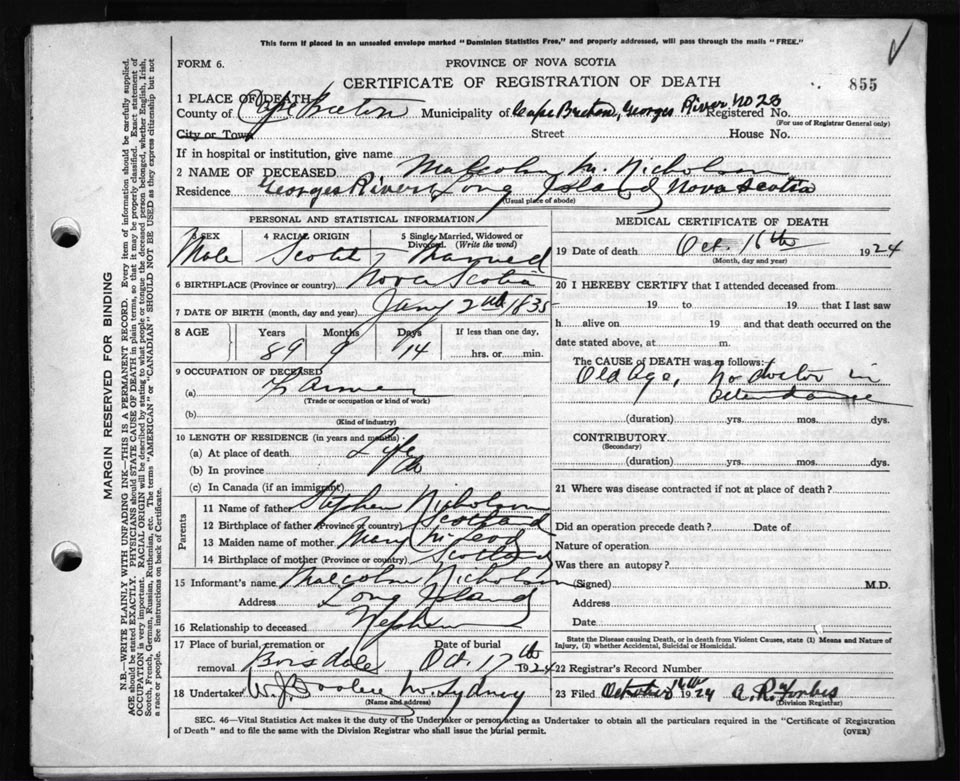 This form if placed in an unsealed envelope marked "Dominion Statistics Free," and properly addressed, will pass through the mails "FREE."
FORM 6.
PROVINCE OF NOVA SCOTIA
CERTIFICATE OF REGISTRATION OF DEATH
855
1 PLACE OF DEATH
County of Cape Breton Municipality of Cape Breton, Georges River No 23 Registered No.
(For use of Registrar General only)
City or Town Street House No.
If in hospital or institution, give name
2 NAME OF DECEASED Malcolm M. Nicholson
Residence Georges River, Long Island, Nova Scotia
(Usual place of abode)
PERSONAL AND STATISTICAL INFORMATION
3 SEX 4 RACIAL ORIGIN 5 Single, Married, Widowed or Divorced. (Write the word)
Male Scotch Married
6 BIRTHPLACE (Province or country) Nova Scotia
7 DATE OF BIRTH (month, day and year) Jany 2nd 1835
8 AGE Years Months Days If less than one day,
89 9 14 hrs. or min.
9 OCCUPATION OF DECEASED
(a) Farmer
(Trade or occupation or kind of work)
(b)
(Kind of industry)
10 LENGTH OF RESIDENCE (in years and months)
(a) At place of death Life
(b) In province Do
(c) In Canada (if an immigrant)
Parents
11 Name of father Stephen Nicholson
12 Birthplace of father (Province or country) Scotland
13 Maiden name of mother Mary McLeod
14 Birthplace of mother (Province or country) Scotland
15 Informant's name Malcolm Nicholson
Address Long Island
16 Relationship to deceased Nephew
17 Place of burial, cremation or removal Date of burial
Boisdale Oct. 17th 1924
18 Undertaker W. J. Dooley N. Sydney
(Name and address)
MEDICAL CERTIFICATE OF DEATH
19 Date of death Oct. 16th 1924
(Month, day and year)
20 I HEREBY CERTIFY that I attended deceased from
19 to 19 that I last saw
h alive on 19 and that death occurred on the
date stated above, at m.
The CAUSE OF DEATH was as follows:
Old Age, No doctor in
attendance
(duration) yrs. mos. dys.
CONTRIBUTORY
(Secondary)
(duration) yrs. mos. dys.
21 Where was disease contracted if not at place of death?
Did an operation precede death? Date of
Nature of operation
Was there an autopsy?
(Signed) M.D.
Address
Date
State the Disease causing Death, or in death from Violent Causes, state (1) Means and Nature of Injury, (2) whether Accidental, Suicidal or Homicidal.
22 Registrar's Record Number
23 Filed October 16th 1924 A. R. Forbes
(Division Registrar)
SEC. 46—Vital Statistics Act makes it the duty of the Undertaker or person acting as Undertaker to obtain all the particulars required in the "Certificate of Registration
of Death" and to file the same with the Division Registrar who shall issue the burial permit.
(OVER)
MARGIN RESERVED FOR BINDING
N.B.—WRITE PLAINLY WITH UNFADING INK—THIS IS A PERMANENT RECORD. Every item of information should be carefully supplied.
AGE should be stated EXACTLY. PHYSICIANS should STATE CAUSE OF DEATH in plain terms, so that it may be properly classified. Exact statement of
OCCUPATION is very important. RACIAL ORIGIN will be described by stating to what people or tongue the deceased person belonged, whether English, Irish,
Scotch, French, German, Russian, Ruthenian, etc. The terms "AMERICAN" or "CANADIAN" SHOULD NOT BE USED as they express citizenship but not
a race or people. See instructions on back of Certificate.